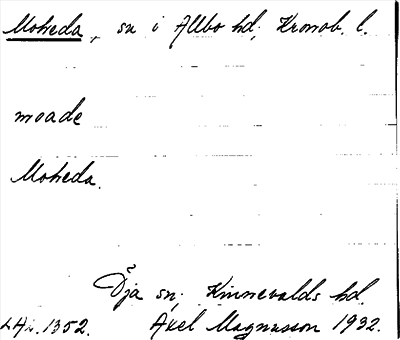 Moheda, sn i Allbo hd, Kronob. l.
moade
Moheda.
Öja sn, Kinnevalds hd.
Axel Magnusson 1932.